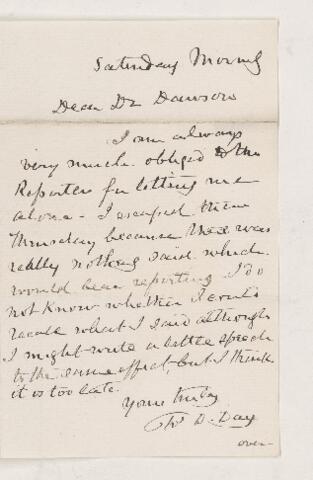 Saturday Morning
Dear Dr Dawson
I am always
very much obliged to the
Reporters for letting me
alone - I escaped them
Thursday because there was
really nothing said which
would bear reporting I do
not know whether I could
recall what I said although
I might write a little speech
to the same effect - but I think
it is too late.
Yours truly
D. Day
over -